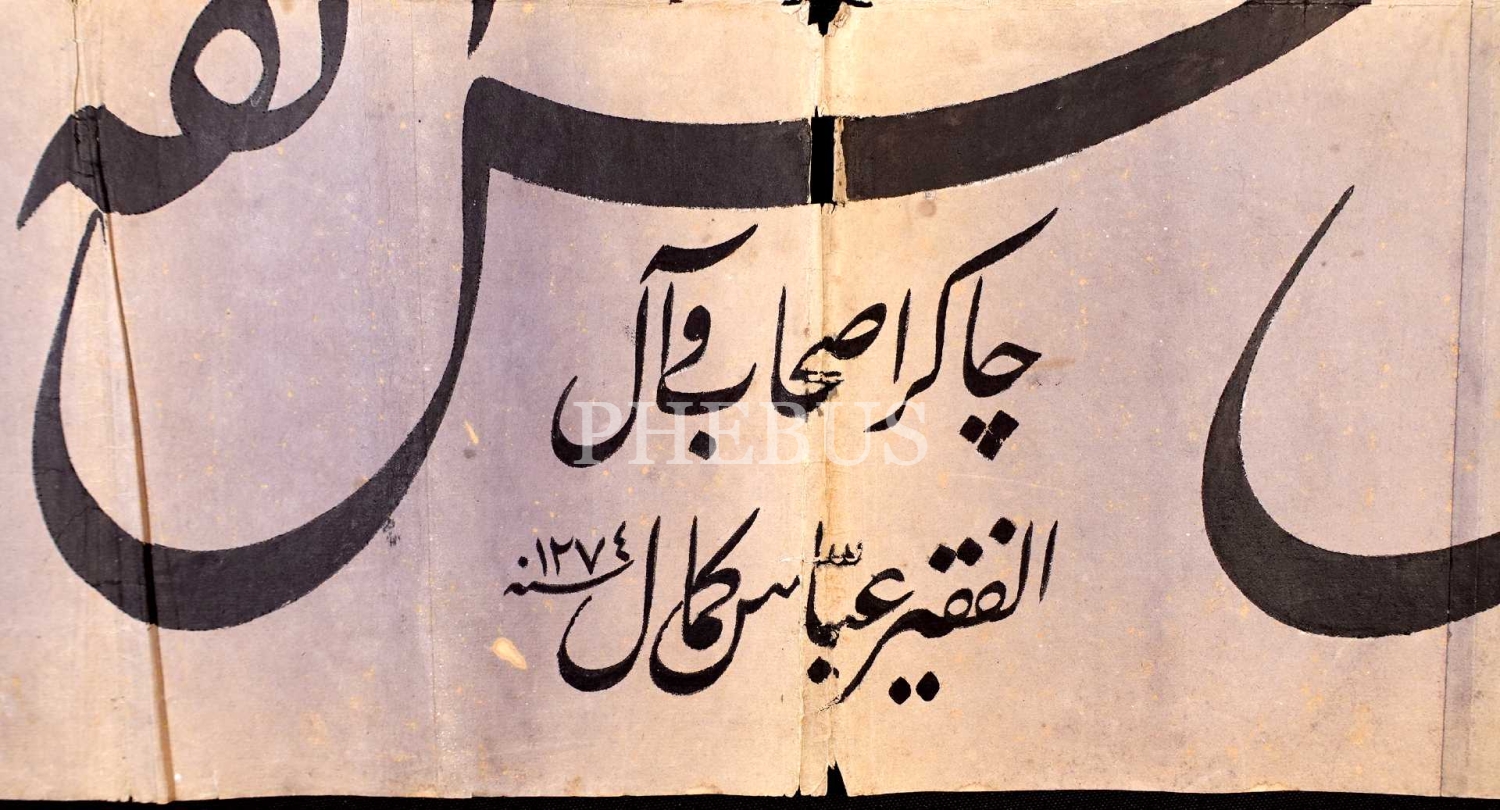 چاکر اصحاب و آل
الفقیر عبّاس کمال
سنه ١٢٧٤
PHEBUS